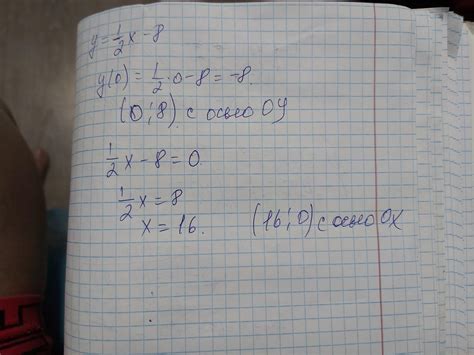 y = 1/2 x - 8
y(0) = 1/2 · 0 - 8 = -8
(0; 8) с осью OY
1/2 x - 8 = 0
1/2 x = 8
x = 16. (16; 0) с осью OX